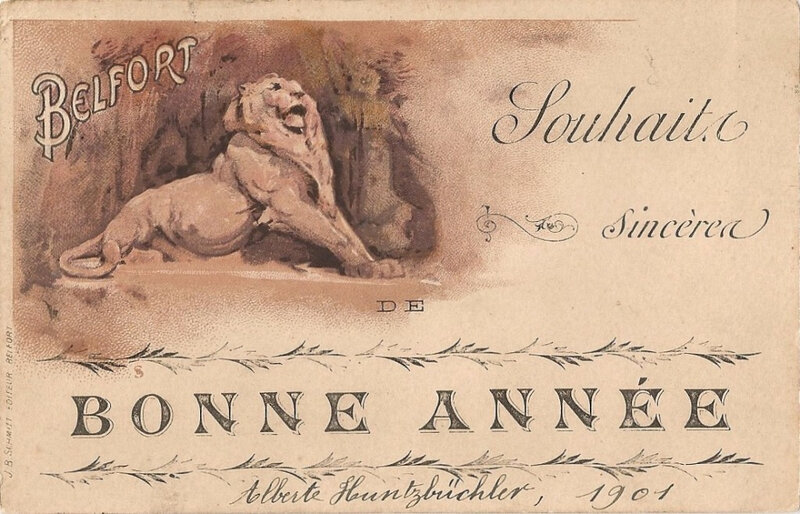 BELFORT
Souhaits
sincères
DE
BONNE ANNÉE
Alberte Huntzbüchler, 1901
J. B. SCHMITT EDITEUR BELFORT
S